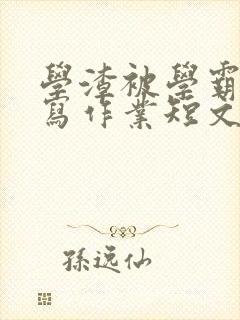 學渣被學霸
寫作業短文
孫遠仙